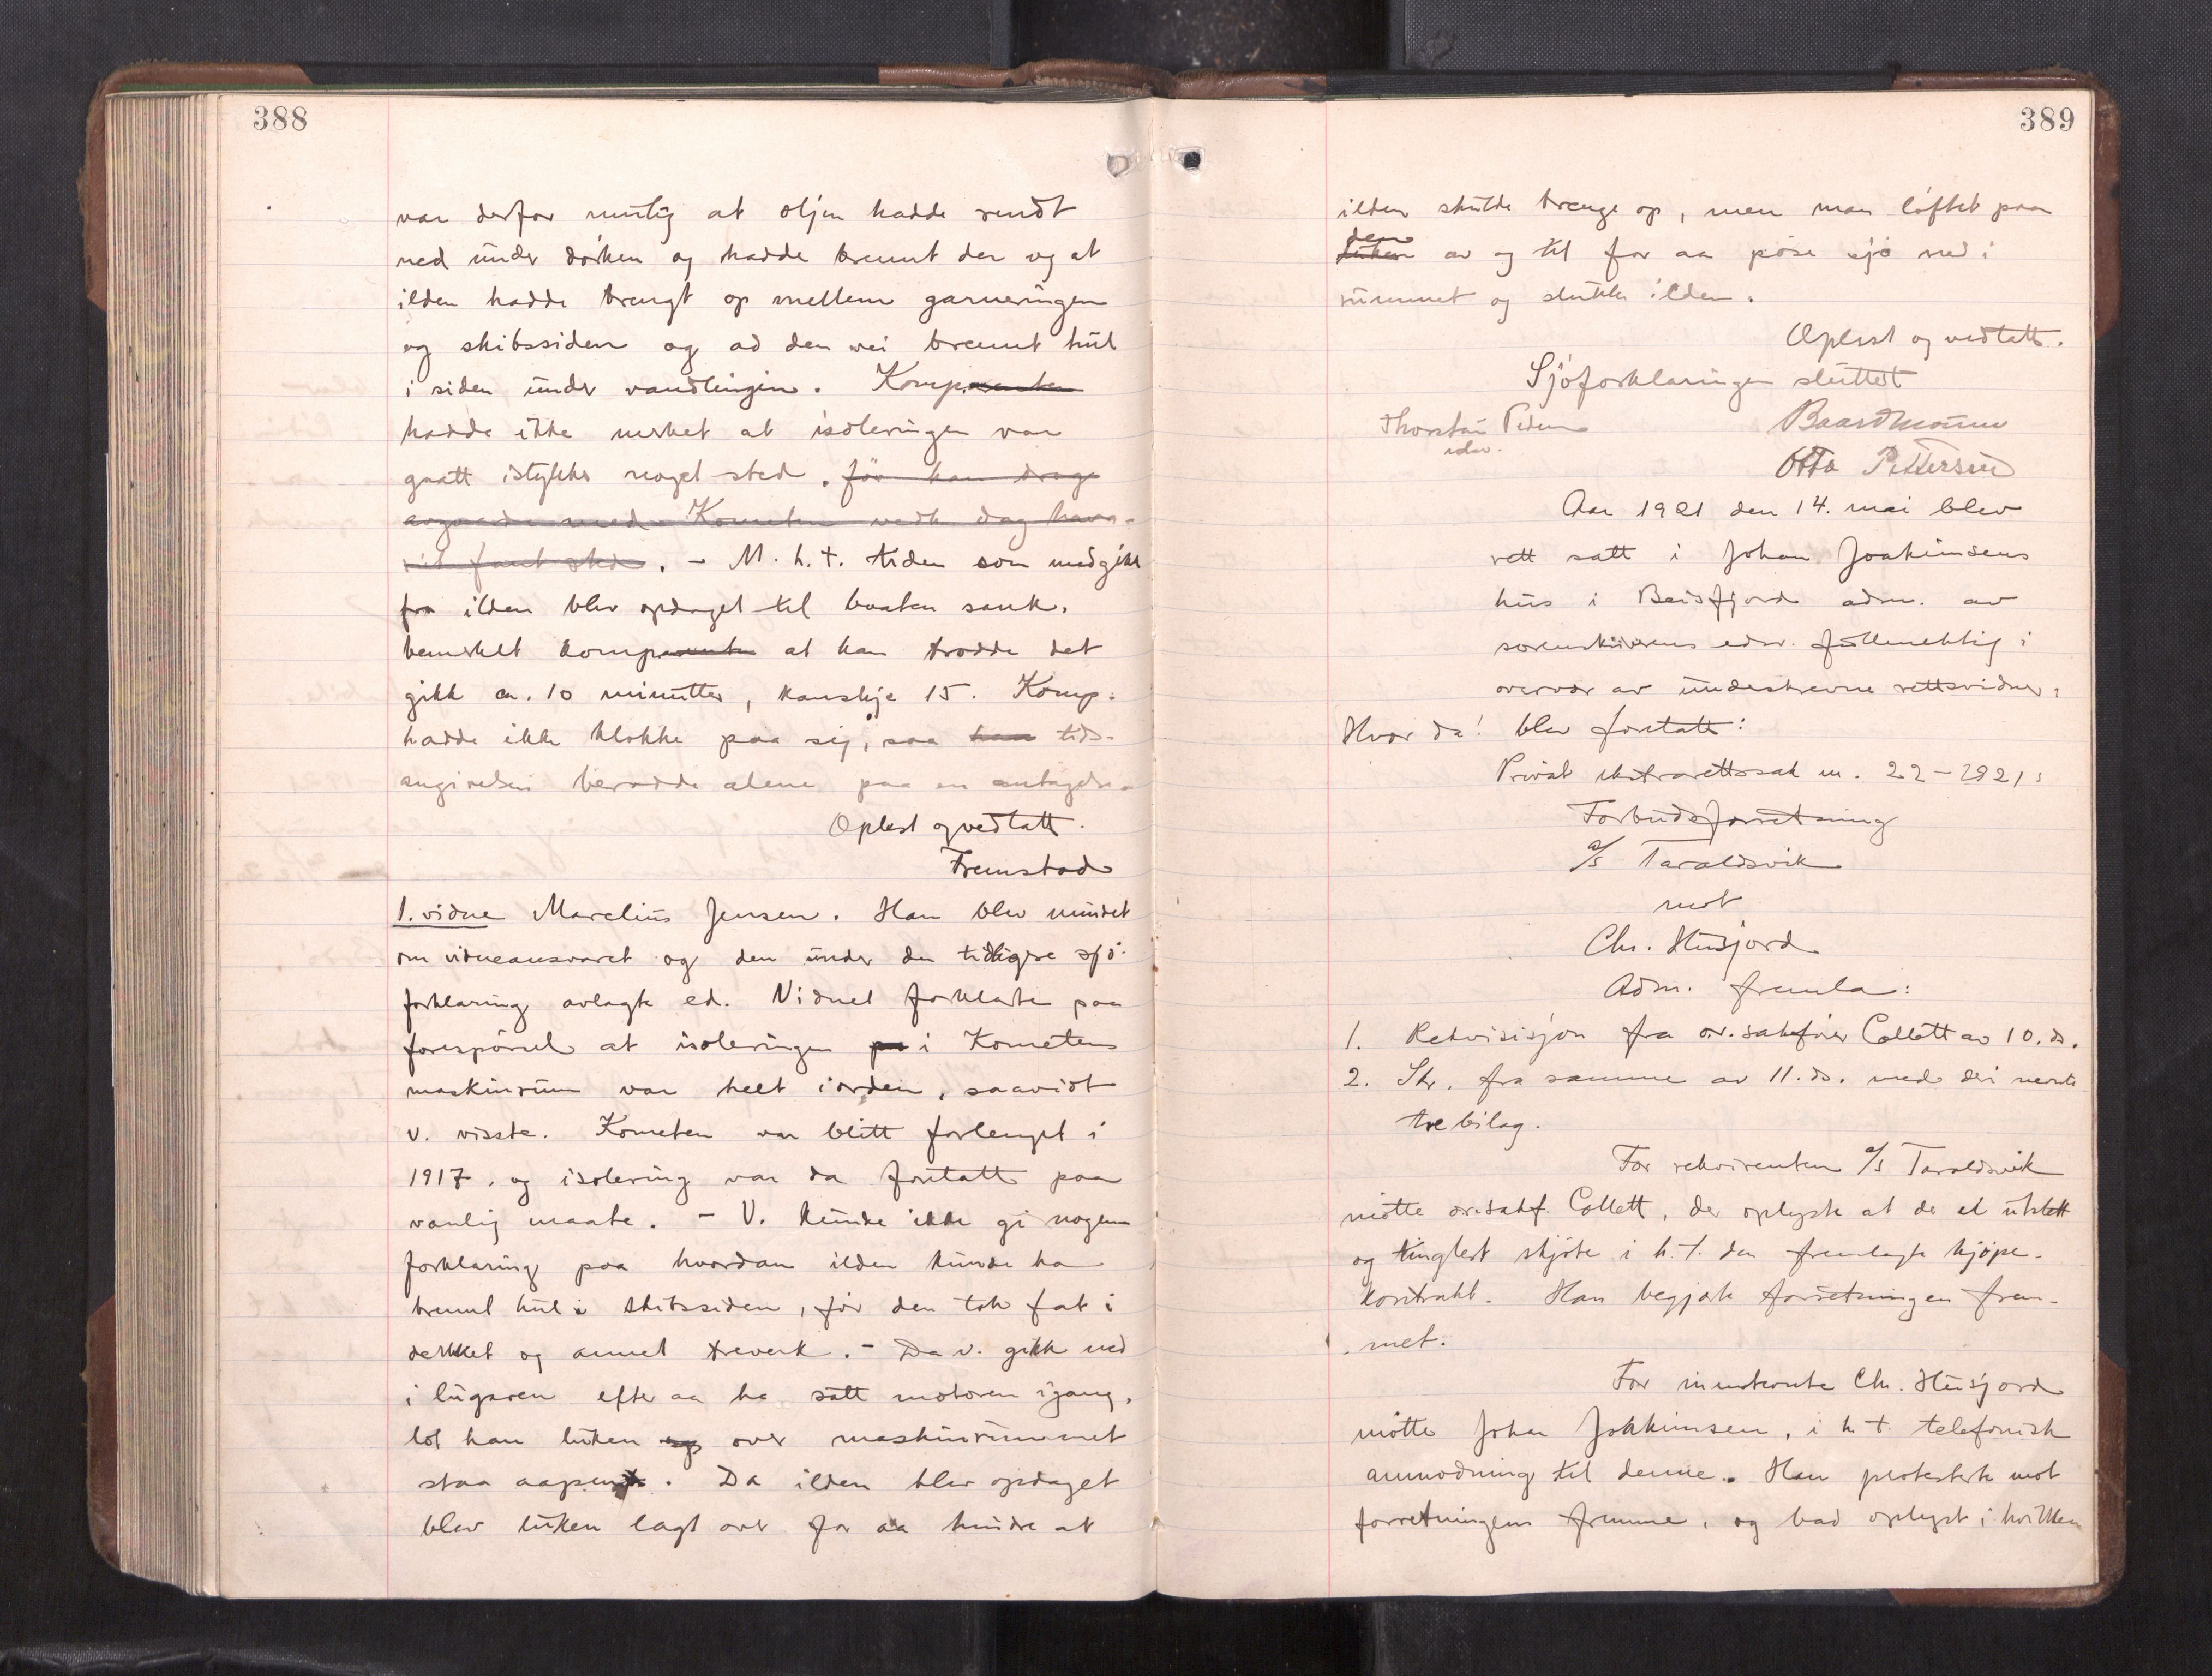 388
var derfor mulig at oljen hadde rendt
ned under dörken og hadde brennt der og at
ilden hadde trengt op mellem garneringen
og skibssiden og ad den vei brennt hul
i siden under vandlinjen. Komparenten
hadde ikke merket at isoleringen var
gaatt istykker noget sted. för han drog
avgaarde med Kometen vedk. dag hava-
riet fant sted. - M. h. t. tiden som medgikk
fra ilden blev opdaget til baaten sank,
bemerket komparenten at han trodde det
gikk ca. 10 minutter, kanskje 15. Komp.
hadde ikke klokke paa sig, saa han tids-
angivelsen berodde alene paa en antagelse.
Oplest og vedtatt.
Fremstod
1. vidne Marelius Jensen. Han blev mindet
om vidneansvaret og den under den tidligere sjö-
forklaring avlagte ed. Vidnet forklarte paa
forespörsel at isoleringen paa i Kometens
maskinrum var helt iorden, saavidt
v. visste. Kometen var blitt forlenget i
1917, og isolering var da foretatt paa
vanlig maate. - V. kunde ikke gi nogen
forklaring paa hvordan ilden kunde ha
brennt hul i skibssiden, för den tok fat i
dekket og annet treverk. - Da v. gikk ned
i lugaren efter aa ha satt motoren igang,
lot han luken og over maskinrummet
staa aapen. Da ilden blev opdaget
blev luken lagt over for aa hindre at
389
ilden skulde trenge op, men man löftet paa
den
luken av og til for aa pöse sjö ned i
rummet og slukke ilden.
Oplest og vedtatt.
Sjöforklaringen sluttet
Thorstein Pedersen
edsv.
Otto Pettersen
Aar 1921 den 14. mai blev
rett satt i Johan Joakimsens
hus i Beisfjord adm. av
sorenskriverens edsv. fullmektig i
overvær av underskrevne rettsvidner.
Hvor da! blev foretatt:
Privat ekstrarettssak nr. 22-1921:
Forbudsforretning
a/s Taraldsvik
mot
Chr. Husjord
Adm. fremla:
1. Rekvisisjon fra or.sakförer Collett av 10. ds.
2. Skr. fra samme av 11. ds. med deri nevnte
tre bilag.
For rekvirenten a/s Taraldsvik
mötte or.sakf. Collett, der oplyste at der er utstett
og tinglest skjöte i h. t. den fremlagte kjöpe-
kontrakt. Han begjærte forretningen frem-
met.
For Chr. Husjord
mötte Johan Joakimsen, i h. t. telefonisk
anmodning til denne. Han protesterte mot
forretningens fremme, og bad oplyst i hvilken